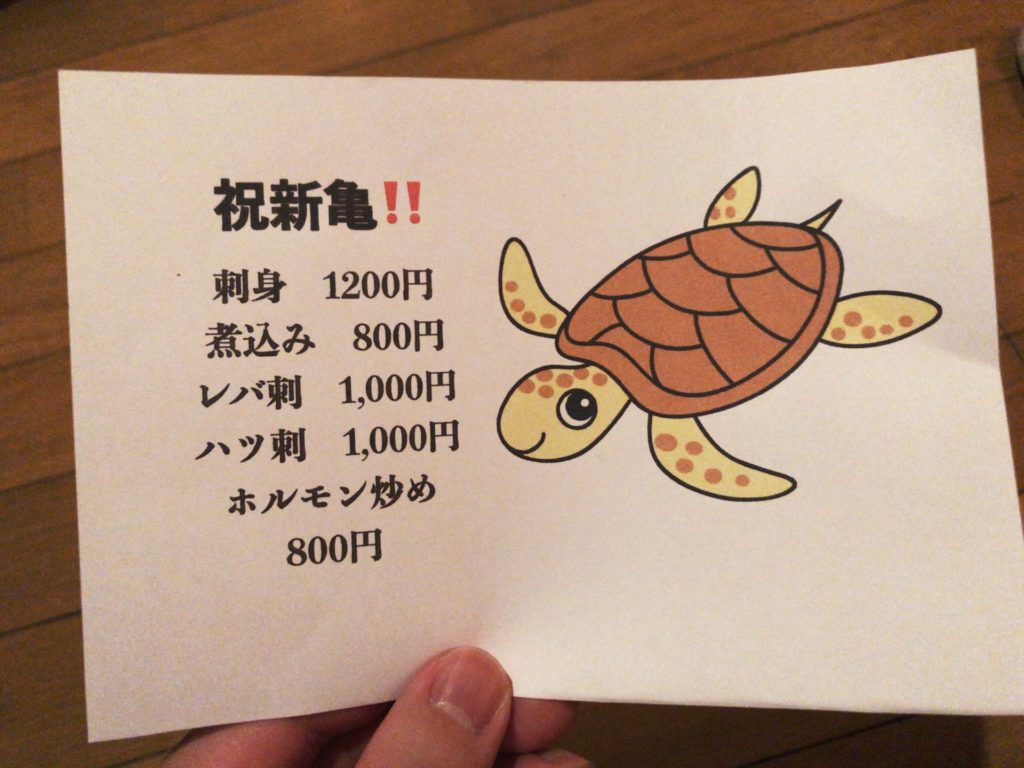 祝新亀‼️
刺身　1200円
煮込み　800円
レバ刺　1,000円
ハツ刺　1,000円
ホルモン炒め
800円